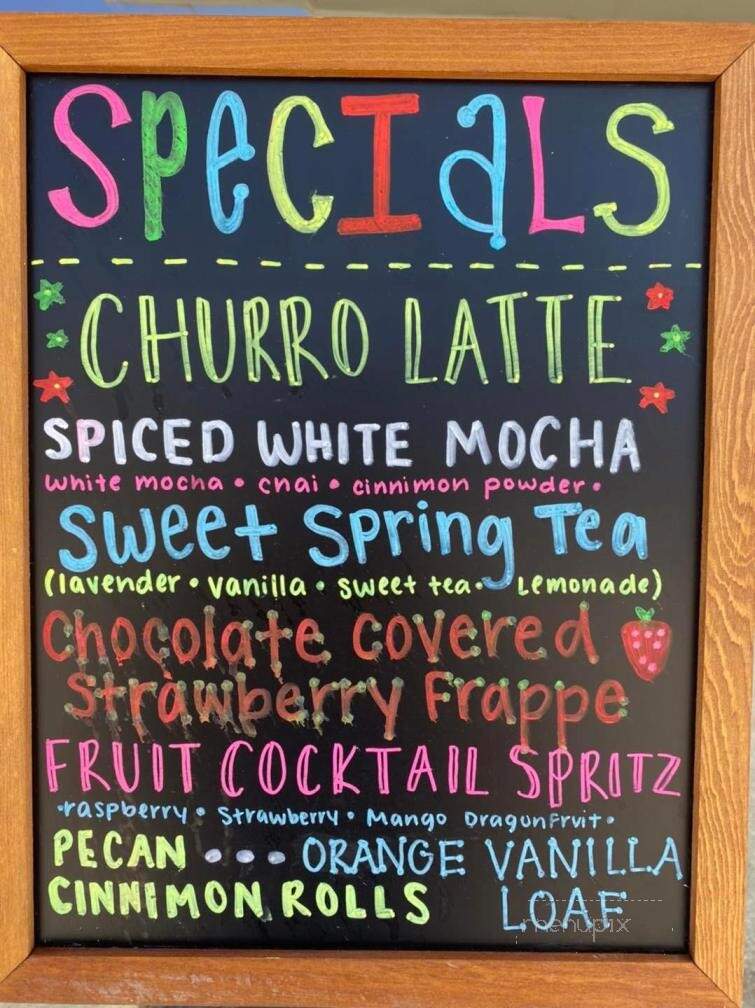 SPeCIaLS
CHURRO LATTE
SPICED WHITE MOCHA
white mocha • chai • cinnimon powder •
Sweet Spring Tea
(lavender • vanilla • sweet tea • Lemonade)
Chocolate Covered
Strawberry Frappe
FRUIT COCKTAIL SPRITZ
•raspberry • Strawberry • Mango DragonFruit •
PECAN ••• ORANGE VANILLA
CINNIMON ROLLS LOAF
menupix